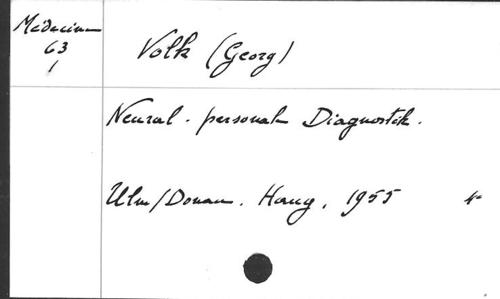 Medecine
63
1
Volk (Georg)
Neural-personale Diagnostik.
Ulm/Donau. Haug, 1955 4°